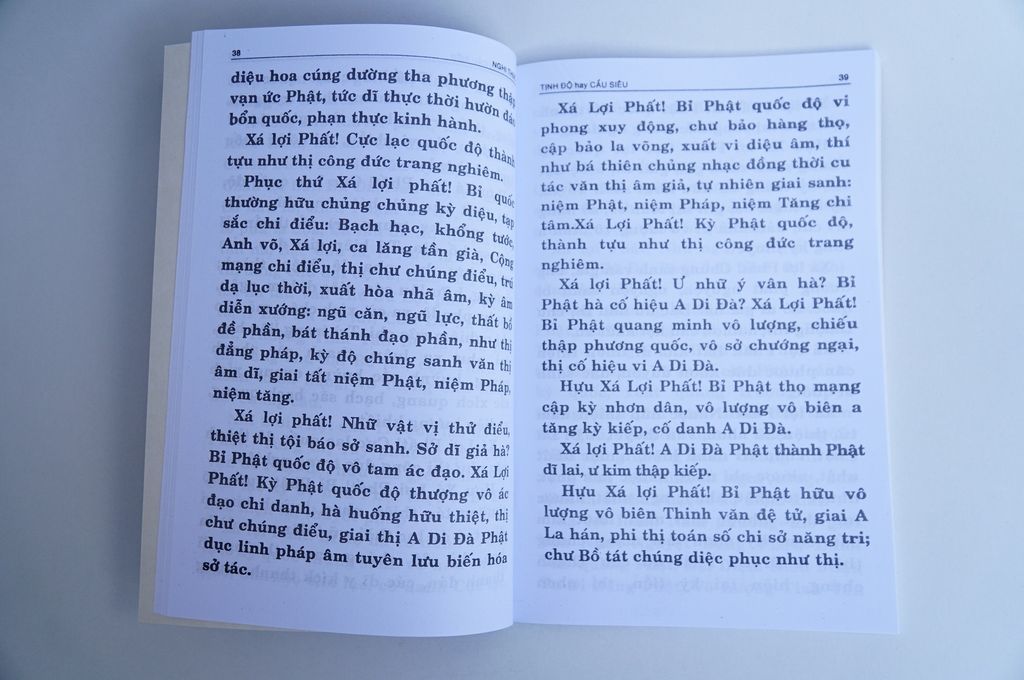 38
NGHI
diệu hoa cúng dường tha phương thập
vạn ức Phật, tức dĩ thực thời hườn đáo
bổn quốc, phạn thực kinh hành.
Xá lợi Phất! Cực lạc quốc độ thành
tựu như thị công đức trang nghiêm.
Phục thứ Xá lợi phất! Bỉ quốc
thường hữu chủng chủng kỳ diệu, tạp
sắc chi điểu: Bạch hạc, khổng tước,
Anh võ, Xá lợi, ca lăng tần già, Cộng
mạng chi điểu, thị chư chúng điểu, trú
dạ lục thời, xuất hòa nhã âm, kỳ âm
diễn xướng: ngũ căn, ngũ lực, thất bồ
đề phần, bát thánh đạo phần, như thị
đẳng pháp, kỳ độ chúng sanh văn thị
âm dĩ, giai tất niệm Phật, niệm Pháp,
niệm tăng.
Xá lợi phất! Nhữ vật vị thử điểu,
thiệt thị tội báo sở sanh. Sở dĩ giả hà?
Bỉ Phật quốc độ vô tam ác đạo. Xá Lợi
Phất! Kỳ Phật quốc độ thượng vô ác
đạo chi danh, hà huống hữu thiệt, thị
chư chúng điểu, giai thị A Di Đà Phật
dục linh pháp âm tuyên lưu biến hóa
sở tác.
TỊNH ĐỘ hay CẦU SIÊU
39
Xá Lợi Phất! Bỉ Phật quốc độ vi
phong xuy động, chư bảo hàng thọ,
cập bảo la võng, xuất vi diệu âm, thí
như bá thiên chủng nhạc đồng thời cu
tác văn thị âm giả, tự nhiên giai sanh:
niệm Phật, niệm Pháp, niệm Tăng chi
tâm.Xá Lợi Phất! Kỳ Phật quốc độ,
thành tựu như thị công đức trang
nghiêm.
Xá lợi Phất! Ư nhữ ý vân hà? Bỉ
Phật hà cố hiệu A Di Đà? Xá Lợi Phất!
Bỉ Phật quang minh vô lượng, chiếu
thập phương quốc, vô sở chướng ngại,
thị cố hiệu vi A Di Đà.
Hựu Xá Lợi Phất! Bỉ Phật thọ mạng
cập kỳ nhơn dân, vô lượng vô biên a
tăng kỳ kiếp, cố danh A Di Đà.
Xá lợi Phất! A Di Đà Phật thành Phật
dĩ lai, ư kim thập kiếp.
Hựu Xá lợi Phất! Bỉ Phật hữu vô
lượng vô biên Thinh văn đệ tử, giai A
La hán, phi thị toán số chi sở năng tri;
chư Bồ tát chúng diệc phục như thị.